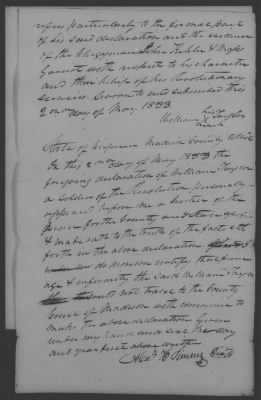 refers particularly to the former part
of his said declaration and the evidence
of the Clergyman John Kibler & Moses
Garriott with respect to his character
and their belief of his Revolutionary
services. Sworn to and subscribed this
2nd day of May 1833
his
William X Taylor
mark
State of Virginia Madison County to wit
On this 2nd day of May 1833 the
foregoing declaration of William Taylor
a Soldier of the Revolution personally
appeared before me a Justice of the
peace for the County and State aforesaid
& made oath to the truth of the facts set
forth in the above declaration
do moreover certify that from
age & infirmity the said William Taylor
could not travel to the County
Court of Madison with convenience to
make the above declaration Given
under my hand and seal the day
and year first above written
Seal